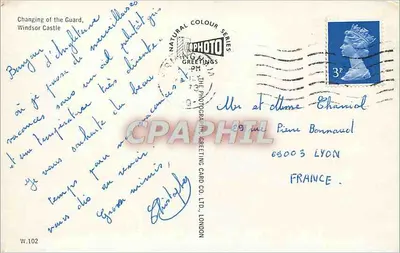 Changing of the Guard,
Windsor Castle
Bonjour d'Angleterre
où je passe de merveilleuses
vacances sous un ciel plutôt gris
et une température très
Je vous souhaite du beau
temps pour vos vacances et
vous dis au revoir
Gros mimis,
Christophe
W.102
NATURAL COLOUR SERIES
PHOTO
GREETINGS
THE PHOTOGRAPHIC GREETING CARD CO. LTD., LONDON
3P
Mr et Mme Chamal
29 rue Pierre Bonnaud
69003 LYON
FRANCE.
CPAPHIL